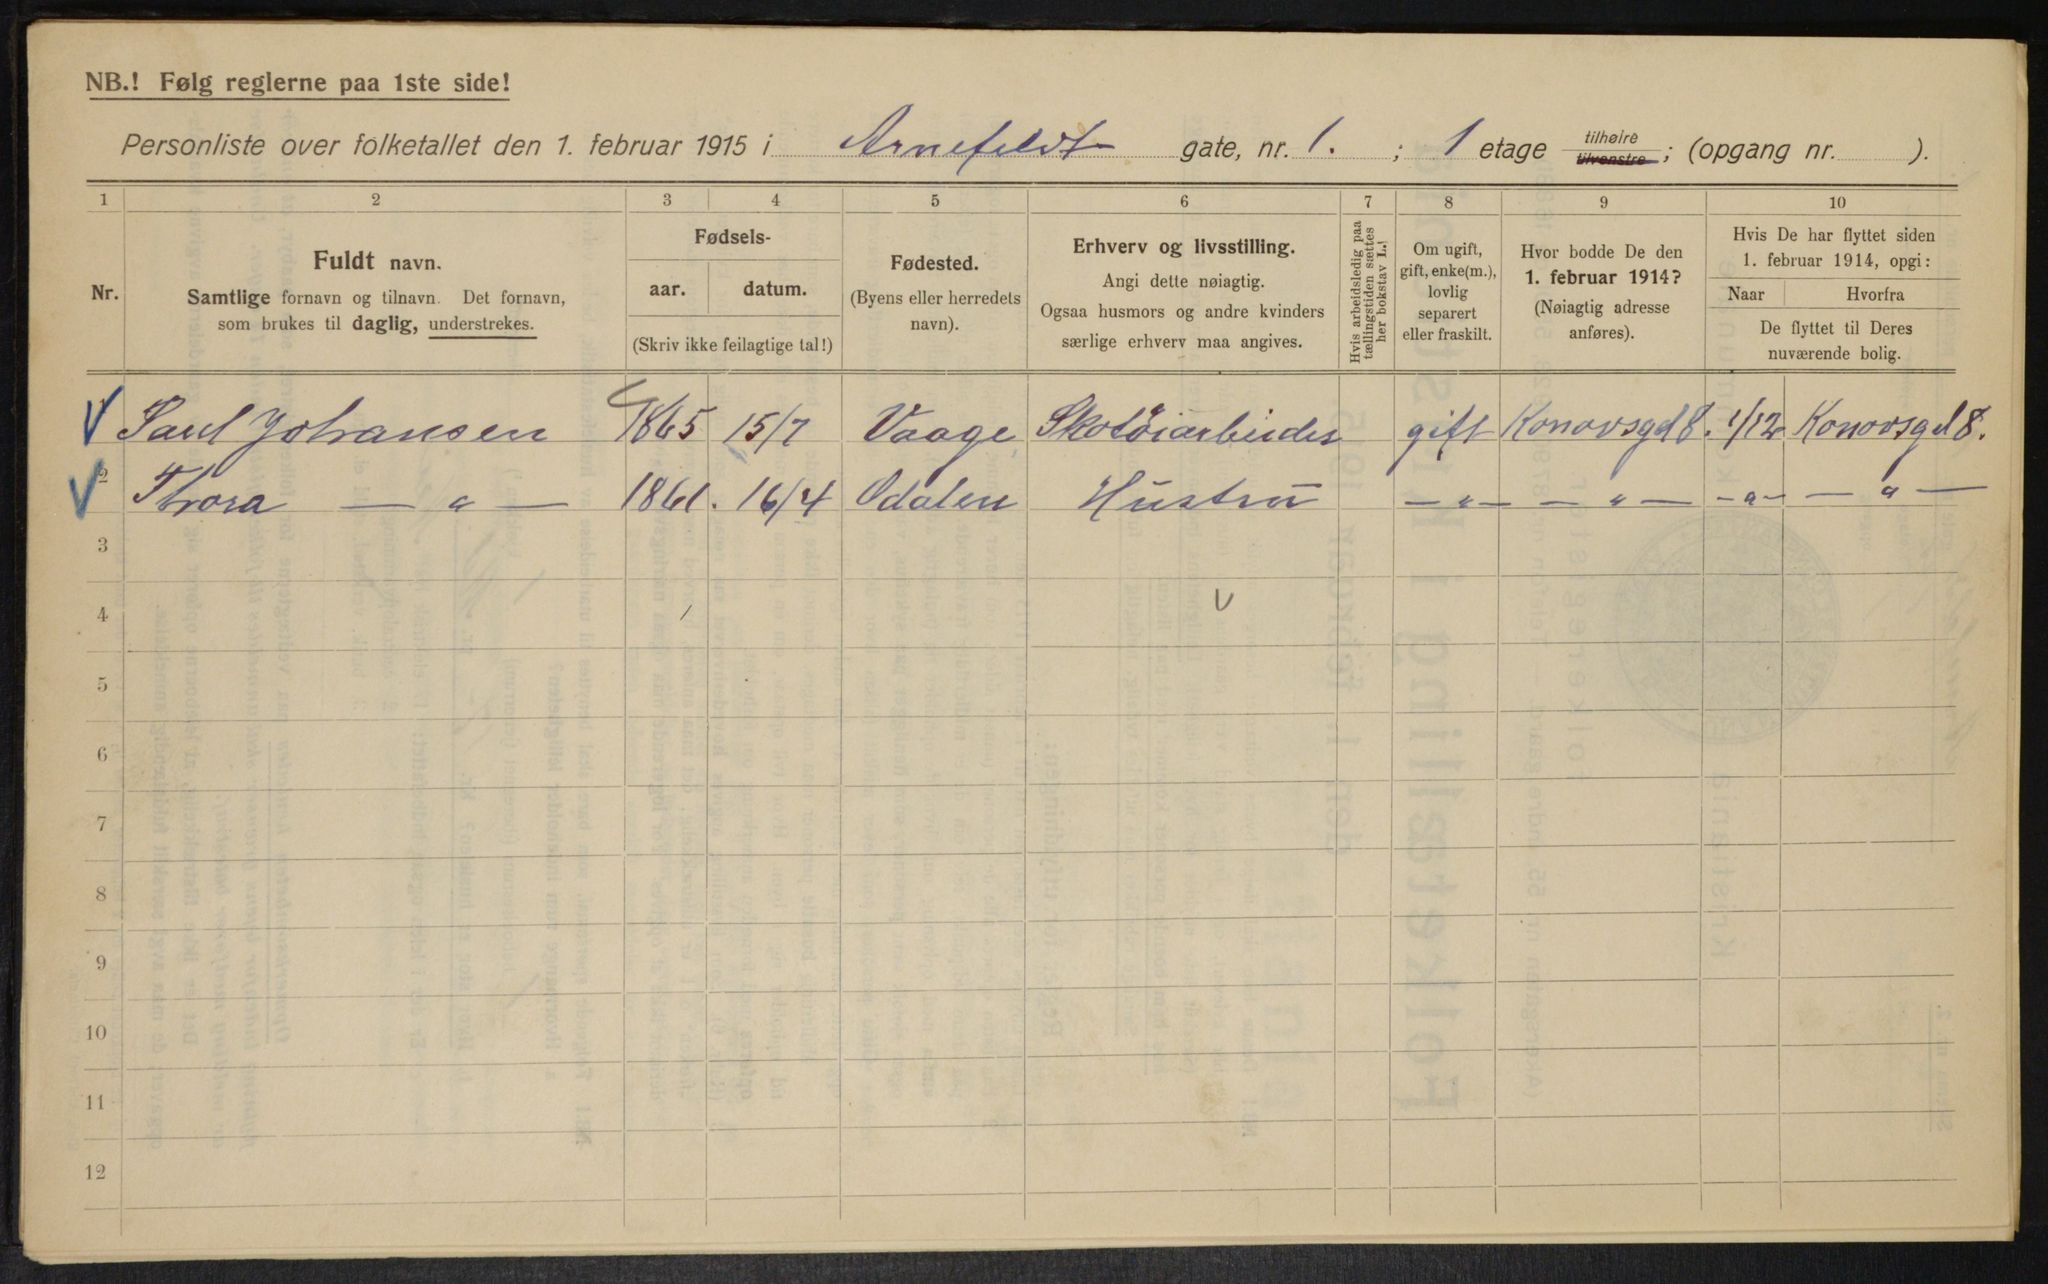 NB.! Følg reglerne paa 1ste side!
Personliste over folketallet den 1. februar 1915 i Arnefeldt gate, nr. 1. ; 1 etage tilhøire tilvenstre; (opgang nr. ).
1 2 3 4 5 6 7 8 9 10
Nr.
Fuldt navn.
Samtlige fornavn og tilnavn. Det fornavn,
som brukes til daglig, understrekes.
Fødsels-
aar. datum.
(Skriv ikke feilagtige tal!)
Fødested.
(Byens eller herredets
navn).
Erhverv og livsstilling.
Angi dette nøiagtig.
Ogsaa husmors og andre kvinders
særlige erhverv maa angives.
Hvis arbeidsledig paa
tællingstiden sættes
her bokstav L.!
Om ugift,
gift, enke(m.),
lovlig
separert
eller fraskilt.
Hvor bodde De den
1. februar 1914?
(Nøiagtig adresse
anføres).
Hvis De har flyttet siden
1. februar 1914, opgi:
Naar Hvorfra
De flyttet til Deres
nuværende bolig.
Johansen 1865 15/7 Vaage Skotøiarbeider gift Konovsgd 8. 1/12 Konovsgd 8.
2 Thora — " — 1861. 16/4 Odalen Hustru — " — — " — — " — — " —
3
4
5
6
7
8
9
10
11
12